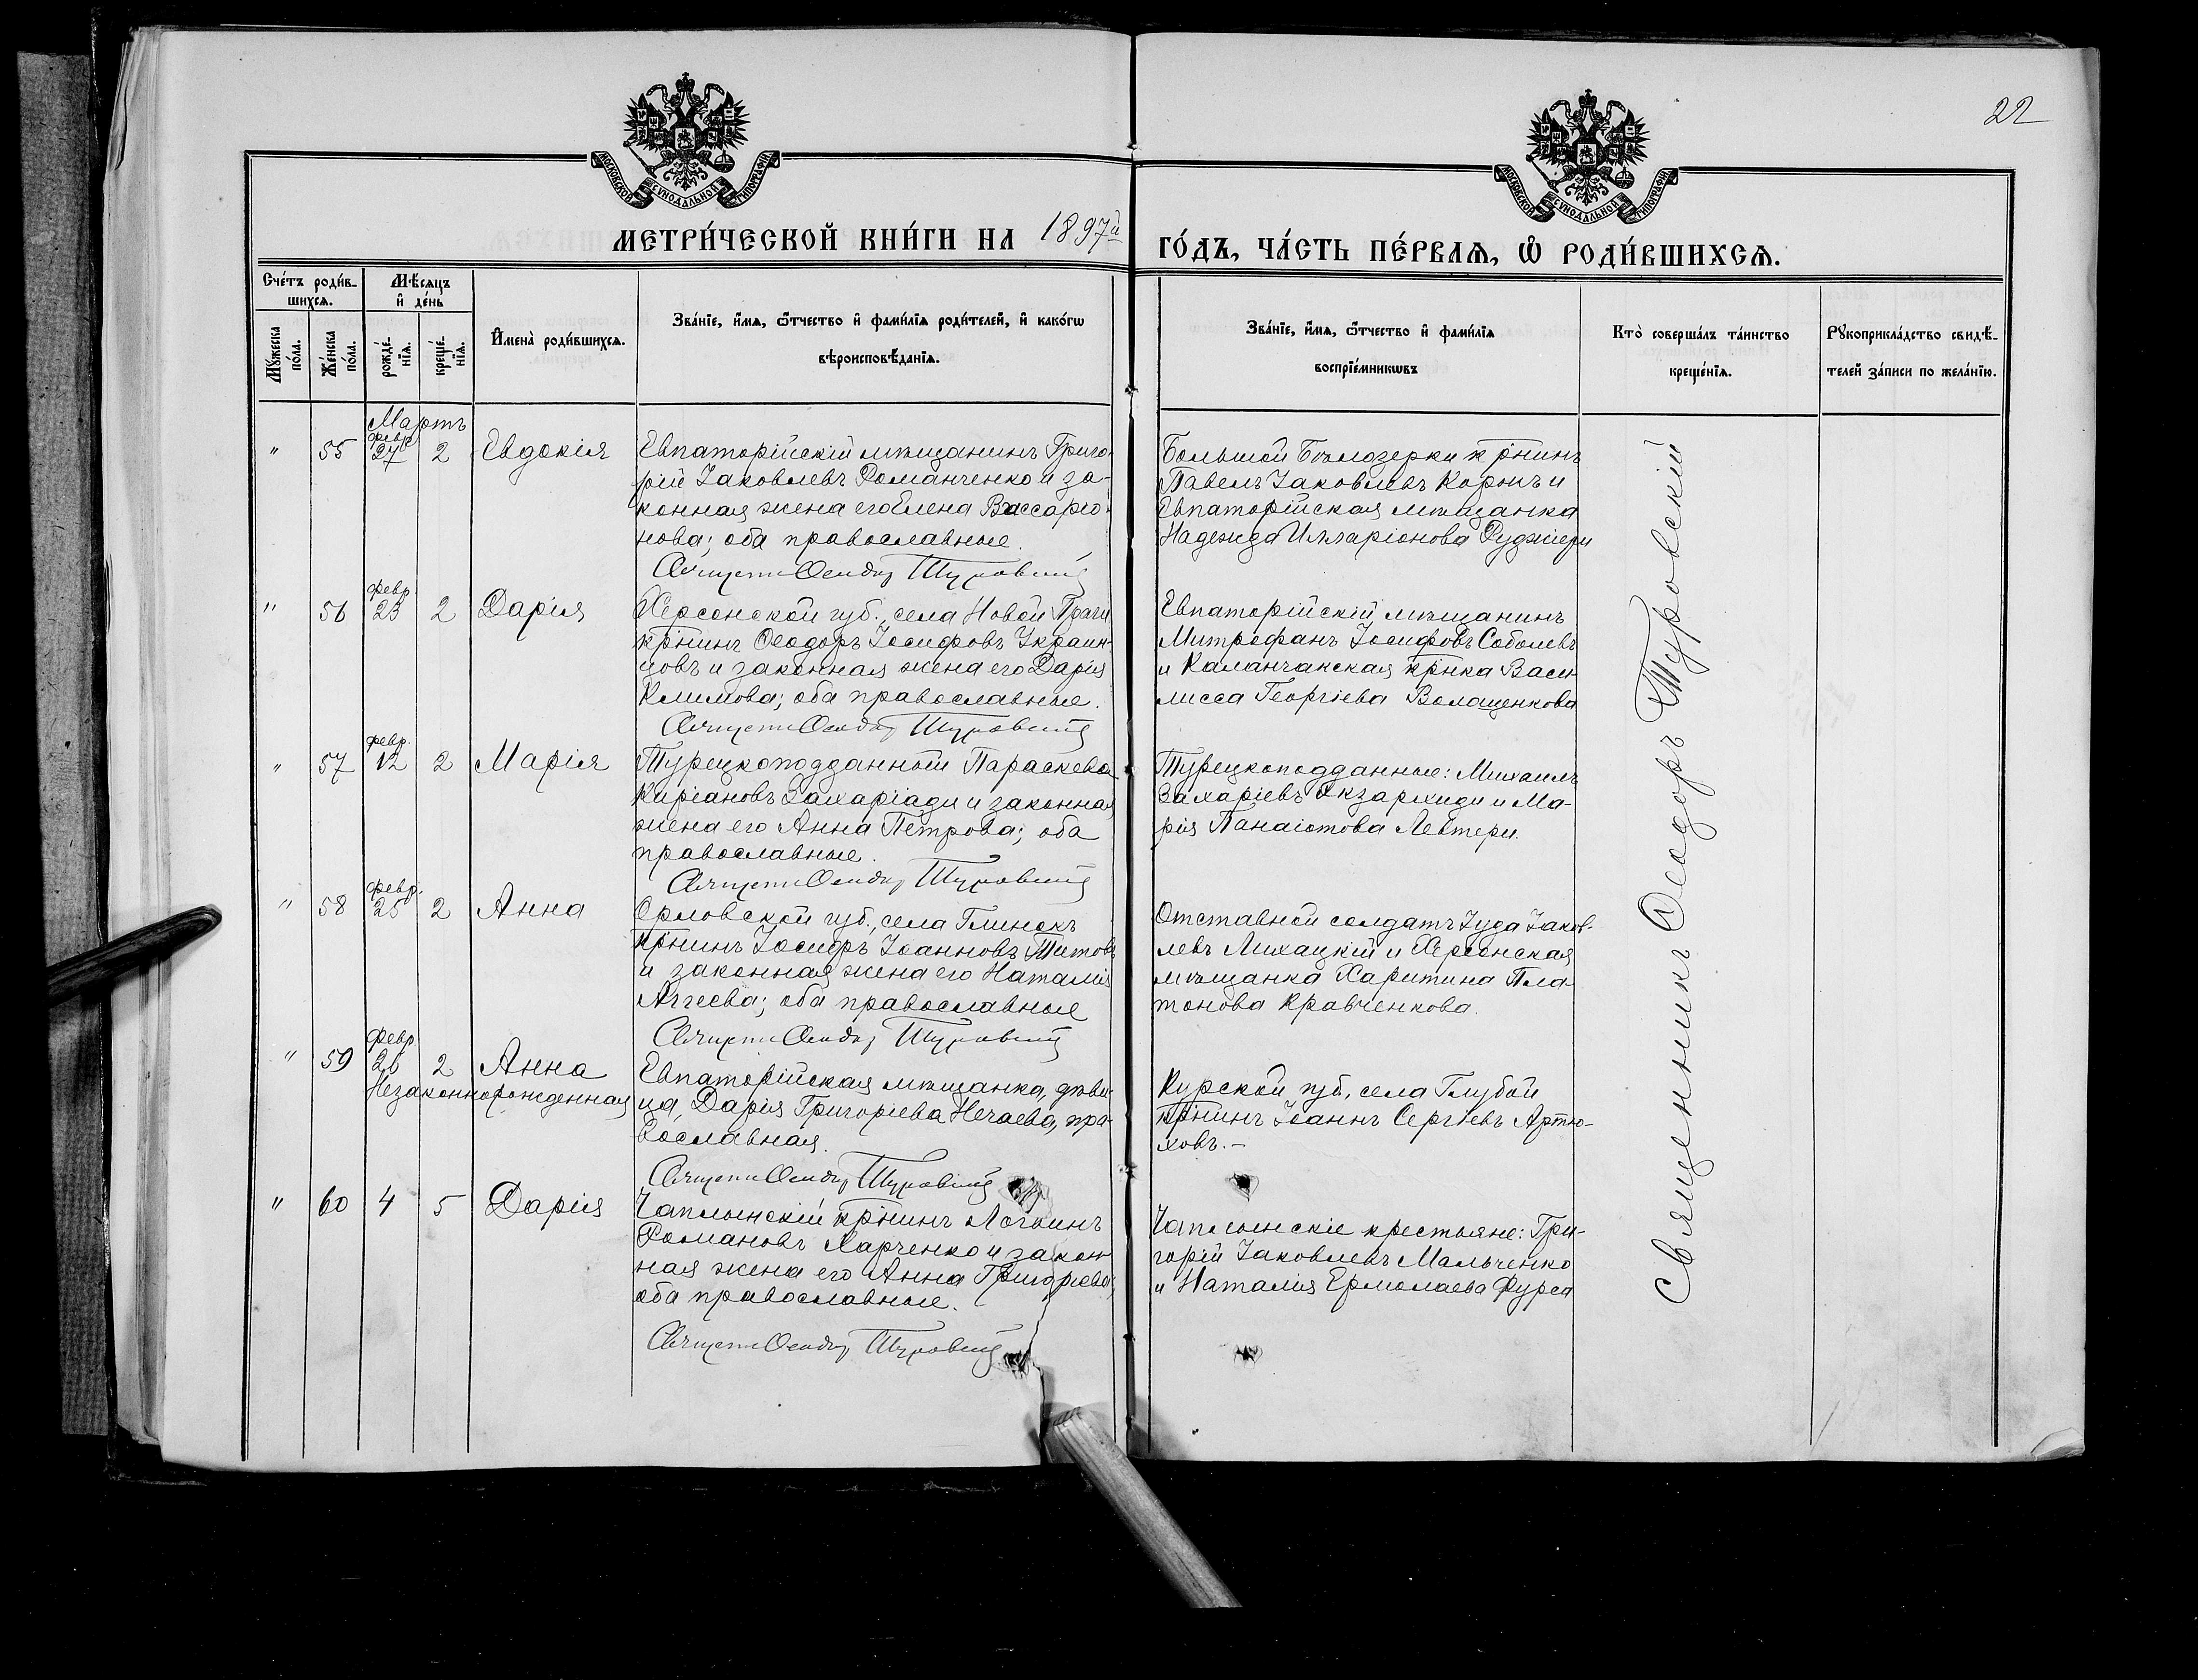 22
МОСКОВСКОЙ СѴНОДАЛЬНОЙ ТИПОГРАФІИ
МОСКОВСКОЙ СѴНОДАЛЬНОЙ ТИПОГРАФІИ
МЕТРИ́ЧЕСКОЙ КНИ́ГИ НА 1897й
ГО́ДЪ, ЧА́СТЬ ПЕ́РВАѦ, Ѡ҆ РОДИ́ВШИХСѦ.
Сче́тъ роди́в-
шихсѧ.
Мꙋ́жеска
по́ла.
Же́нска
по́ла.
Мѣ́сѧцъ
и҆ де́нь
рожде́-
нїѧ.
креще́-
нїѧ.
И҆мена̀ роди́вшихсѧ.
Зва́нїе, и҆́мѧ, ѻ҆́тчество и҆ фами́лїѧ роди́телей, и҆ како́гѡ
вѣроисповѣ́данїѧ.
Зва́нїе, и҆́мѧ, ѻ҆́тчество и҆ фами́лїѧ
воспрїе́мникѡвъ
Кто̀ соверша́лъ та́инство
креще́нїѧ.
Рꙋкоприкла́дство свидѣ́-
телей за́писи по жела́нїю.
Мартъ
" 55 февр. 27 2 Евдокія
Евпаторійскій мѣщанинъ Григо-
рій Іаковлевъ Романченко и за-
конная жена его Елена Вассаріо-
нова; оба православные.
Священ. Ѳеодоръ Туровскій
Большой Бѣлозерки кр̅нинъ
Павелъ Іаковлевъ Коржъ и
Евпаторійская мѣщанка
Надежда Илларіонова Руджіери
" 56 февр. 23 2 Дарія
Херсонской губ., села Новой Праги
кр̅нинъ Ѳеодоръ Іосифовъ Украин-
цовъ и законная жена его Дарія
Климова; оба православные.
Священ. Ѳеодоръ Туровскій
Евпаторійскій мѣщанинъ
Митрофанъ Іосифовъ Соболевъ
и Каланчакская кр̅нка Васи-
лисса Георгіева Волащенкова
" 57 февр. 12 2 Марія
Турецкоподданный Параскева
Киріановъ Захаріади и законная
жена его Анна Петрова; оба
православные.
Священ. Ѳеодоръ Туровскій
Турецкоподданные: Михаилъ
Захаріевъ Якзархиди и Ма-
рія Панаіотова Левтери.
" 58 февр. 25 2 Анна
Орловской губ., села Глинокъ
кр̅нинъ Іосифъ Іоанновъ Титовъ
и законная жена его Наталія
Аггеева; оба православные
Священ. Ѳеодоръ Туровскій
Отставной солдатъ Іуда Іаков-
левъ Лихацкій и Херсонская
мѣщанка Харитина Пла-
тонова Кравченкова.
" 59 февр. 26 2 Анна
Незаконнорожденная
Евпаторійская мѣщанка, дѣви-
ца, Дарія Григоріева Нечаева, пра-
вославная.
Священ. Ѳеодоръ Туровскій
Курской губ., села Глубой
кр̅нинъ Іоаннъ Сергіевъ Артю-
ховъ.-
" 60 4 5 Дарія
Чаплынскій кр̅нинъ Логвинъ
Романовъ Харченко и закон-
ная жена его Анна Григоріева;
оба православные.
Священ. Ѳеодоръ Туровскій
Чаплынскіе крестьяне: Гри-
горій Іаковлевъ Мальченко
и Наталія Ермолаева Фурса
Священникъ Ѳеодоръ Туровскій